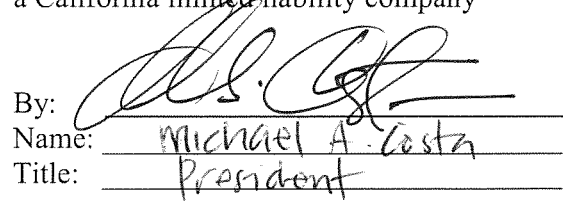 a California limited liability company
By:
Name: Michael A. Costa
Title: President